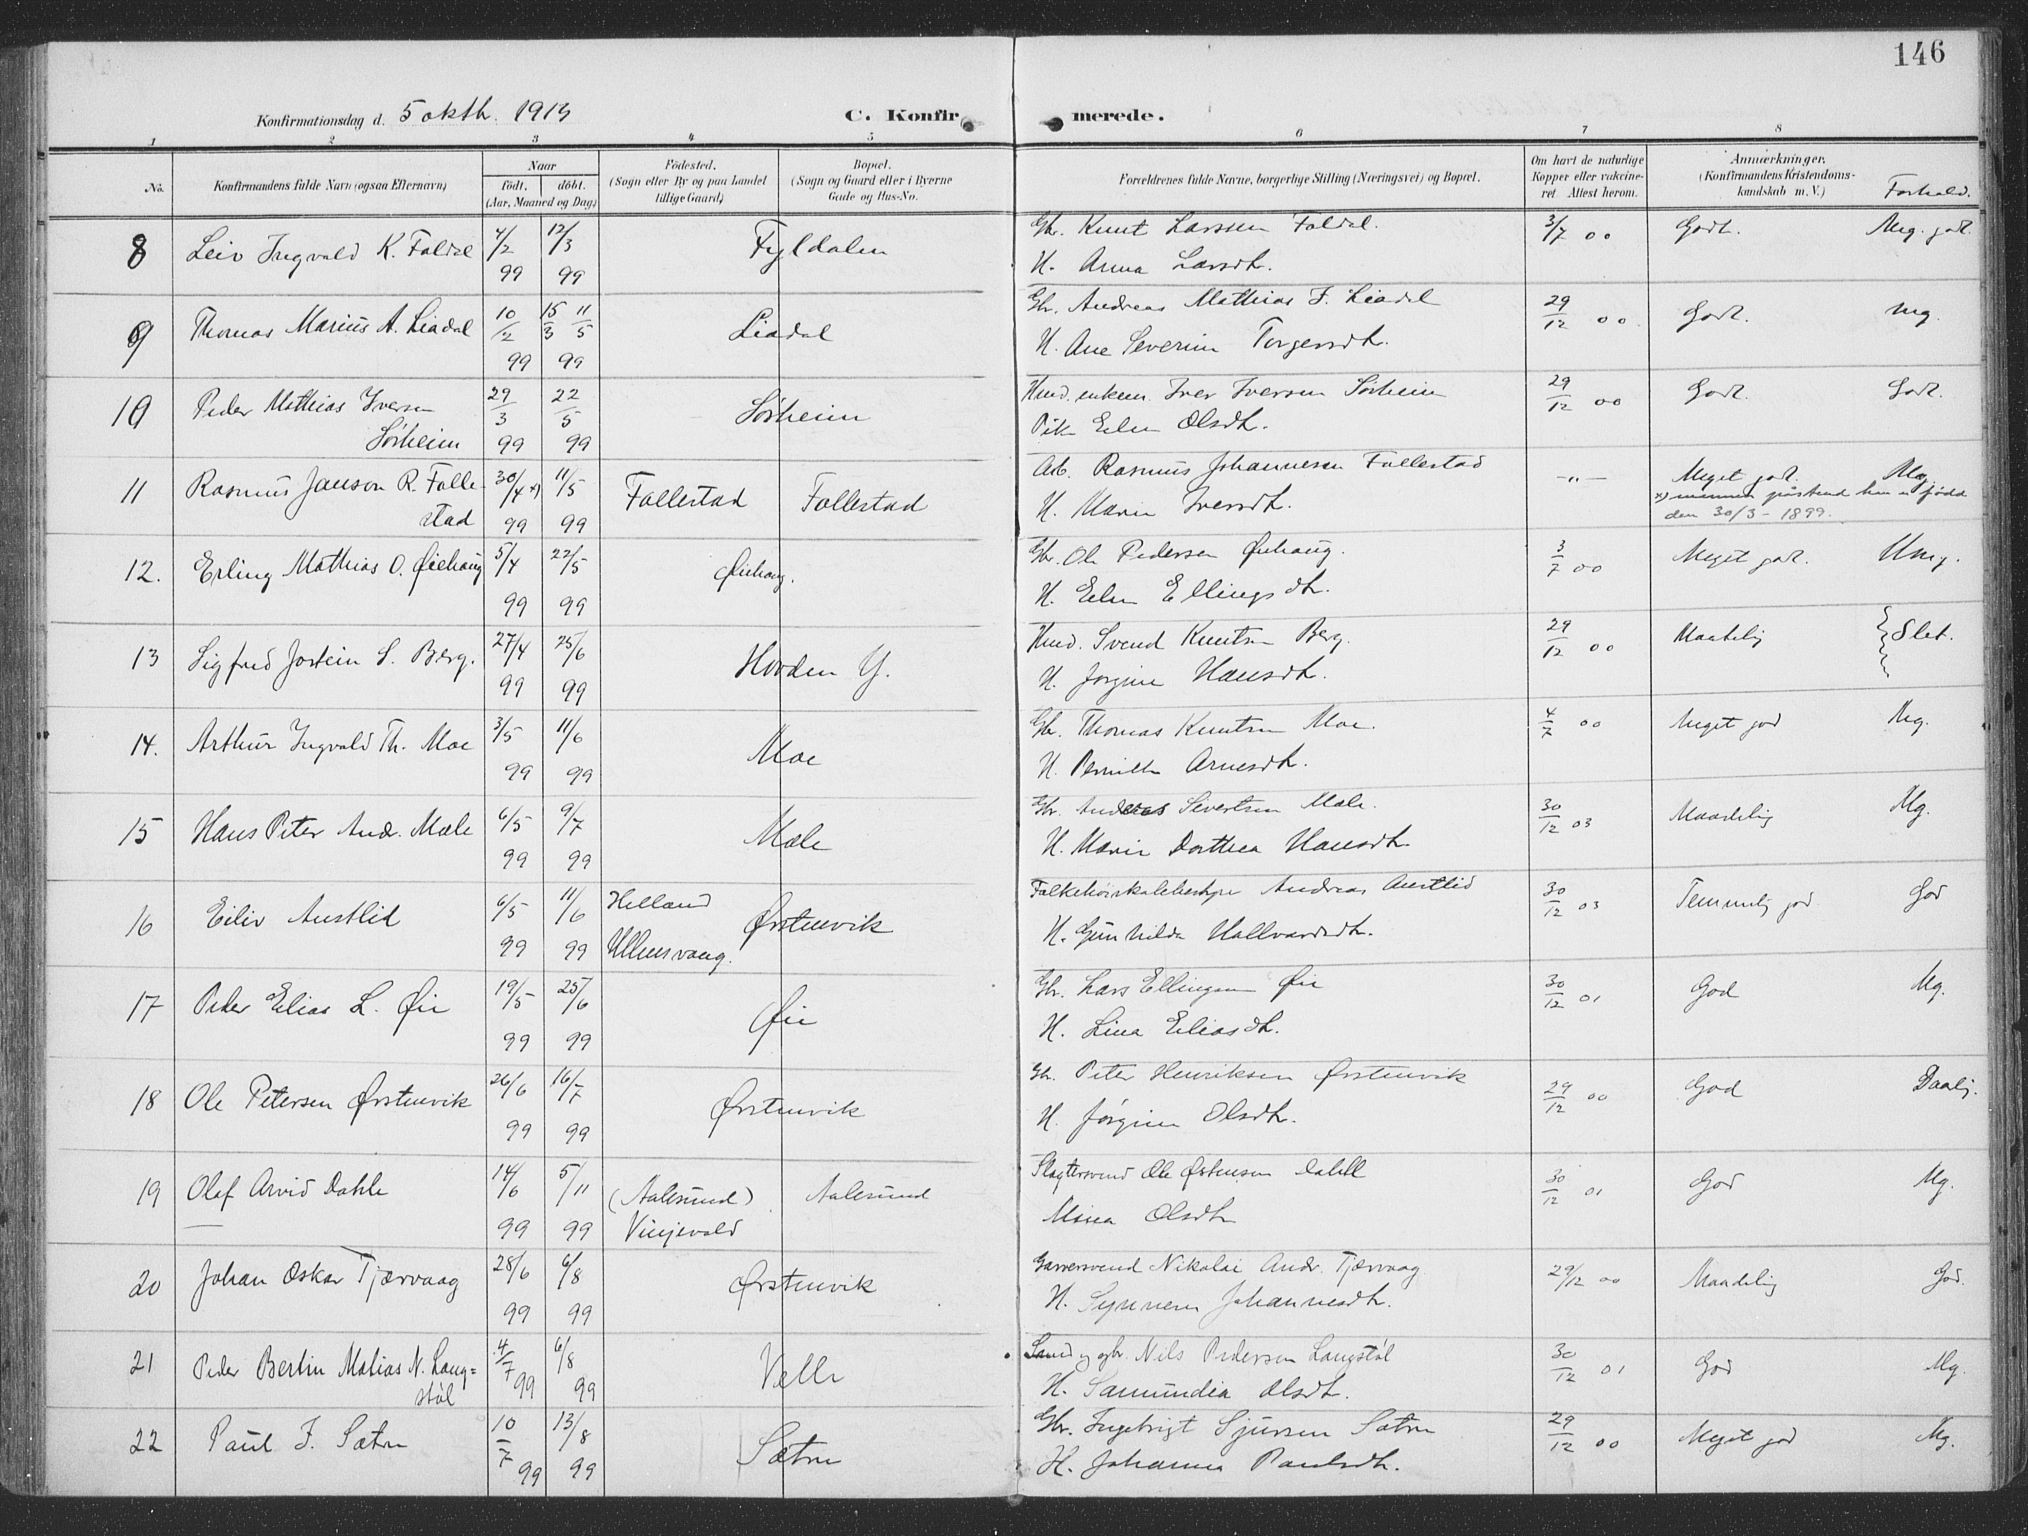 146
Konfirmationsdag d. 5 oktb. 1913
C. Konfirmerede.
1 2 3 4 5 6 7 8
No.
Konfirmandens fulde Navn (ogsaa Efternavn)
Naar
födt. döbt.
(Aar, Maaned og Dag)
Födested.
(Sogn eller By og paa Landet
tillige Gaard)
Bopæl.
(Sogn og Gaard eller i Byerne
Gade og Hus-No.
Forældrenes fulde Navne, borgerlige Stilling (Næringsvei) og Bopæl.
Om havt de naturlige
Kopper eller vakcine-
ret Attest herom.
Anmærkninger.
(Konfirmandens Kristendoms-
kundskab m. V.)
Forhold.
8 Leiv Ingvald K. Foldal 4/2 99 12/3 99 Fyldalen Gbr. Knut Larssen Foldal. 3/7 00 Godt. Mg. godt.
H. Anna Larsdt.
9 Thomas Marius A. Liadal 10/2 99 15/3 11/5 99 Liadal Gbr. Andreas Mathias F. Liadal 29/12 00 Godt. Mg.
H. Ane Severine Torgersdt.
10 Peder Mathias Iversen 29/3 99 22/5 99 Sörheim Iver Iversen Sörheim 29/12 00 Godt. Godt.
Sörheim
Pik Elen Olsdt.
11 Rasmus Janson R. Folle- 30/4 x) 99 11/5 99 Follestad Follestad Arb. Rasmus Johannesen Follestad -"- Meget godt. Mg.
stad
H. Maren Iversdt.
x) mannen påstend han er född
den 30/3 - 1899.
12. Erling Mathias O. Øiehaug 5/4 99 22/5 99 Øiehaug. Gbr. Ole Pedersen Øiehaug. 3/7 00 Meget godt. Umg.
H. Elen Ellingsdt.
13 Sigfred Jostein S. Berg. 27/4 99 25/6 99 Hovden Y. Svend Knutsen Berg. 29/12 00 Maatelig Slet.
H. Jorgine Hansdt.
14. Arthur Ingvald Th. Moe 3/5 99 11/6 99 Moe Gbr. Thomas Knutsen Moe. 4/7 00 Meget god Mg.
H. Pernille Arnesdt.
15 Hans Peter Andr. Mæle 6/5 99 9/7 99 Mæle Gbr. Andreas Sivertsen Mæle. 30/12 03 Maadelig Mg.
H. Marie Dorthea Hansdt.
16 Eiliv Austlid 6/5 99 11/6 99 Helland Ørstenvik Folkehöiskolebestyrer Andreas Austlid 30/12 03 Temmelig god God
Ullensvang.
H. Gunhilda Hallvardsdt.
17 Peder Elias L. Øie 19/5 99 25/6 99 Øie Gbr. Lars Ellingsen Øie 30/12 01 God Mg.
H. Lina Eliasdt.
18 Ole Petersen Ørstenvik 26/6 99 16/7 99 Ørstenvik Gbr. Peter Henriksen Ørstenvik 29/12 00 God Daalig.
H. Jörgine Olsdt.
19 Olaf Arvid Dahle 14/6 99 5/11 99 (Aalesund) Aalesund Slagtersvend Ole Østensen Dahle 30/12 01 God Mg.
Vinjevold
Mina Olsdt.
20 Johan Oskar Tjærvaag 28/6 99 6/8 99 Ørstenvik Garversvend Nikolai Andr. Tjærvaag 29/12 00 Maadelig God.
H. Synneve Johannesdt.
21 Peder Bertin Matias N. Lang= 4/7 99 6/8 99 Velle Nils Pedersen Langstöl 30/12 01 God Mg.
stöl
H. Samundia Olsdt.
22 Paul I. Sætre 10/7 99 13/8 99 Sætre Gbr. Ingebrigt Sjursen Sætre 29/12 00 Meget god Mg.
H. Johanna Paulsdt.